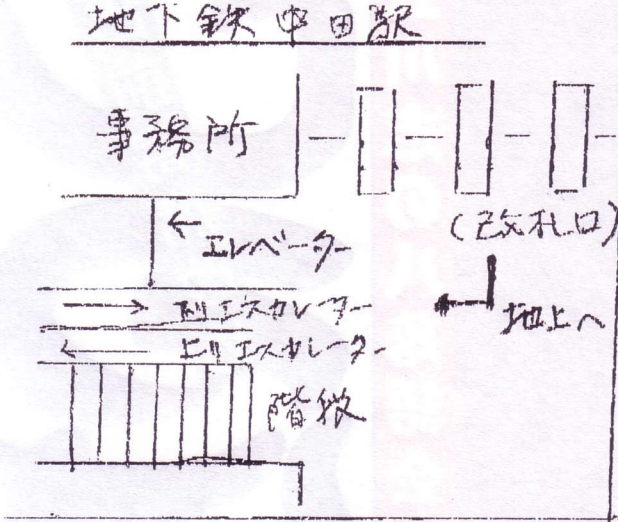 地下鉄中田駅
事務所
(改札口)
← エレベーター
→ 下りエスカレーター
地上へ
← 上りエスカレーター
階段